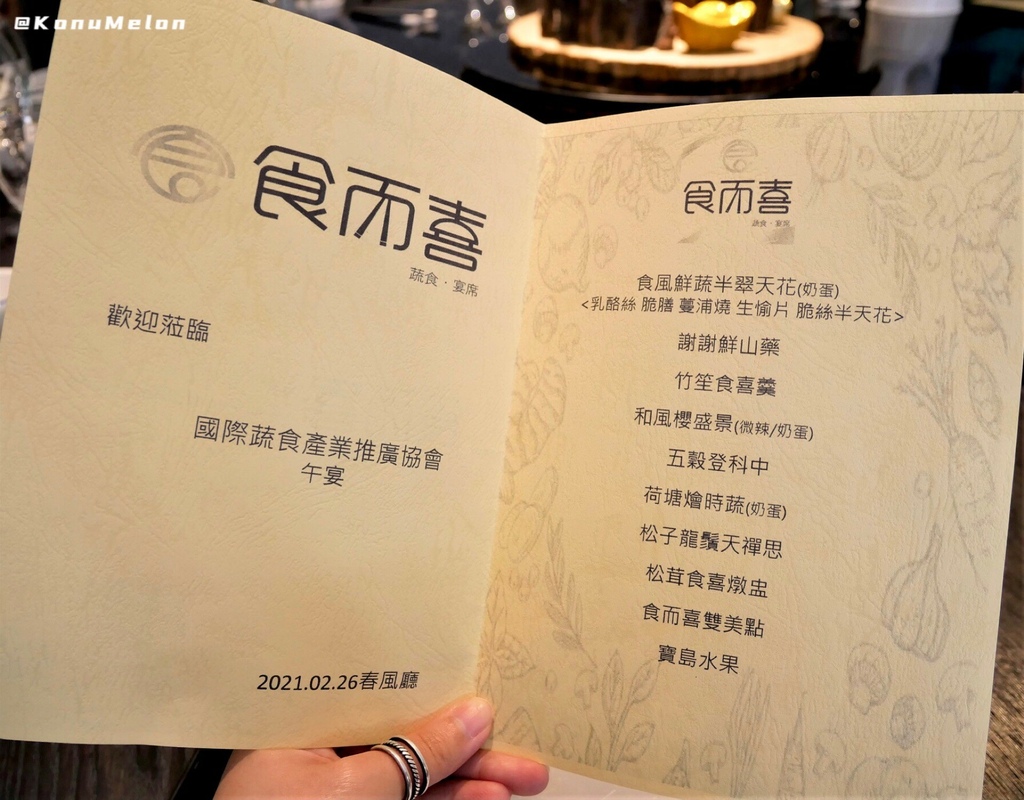 @KonuMelon
食而喜
蔬食·宴席
歡迎蒞臨
國際蔬食產業推廣協會
午宴
2021.02.26春風廳
食而喜
食風鮮蔬半翠天花(奶蛋)
<乳酪絲 脆膳 蔓浦燒 生愉片 脆絲半天花>
謝謝鮮山藥
竹笙食喜羹
和風櫻盛景(微辣/奶蛋)
五穀登科中
荷塘燴時蔬(奶蛋)
松子龍鬚天禪思
松茸食喜燉盅
食而喜雙美點
寶島水果